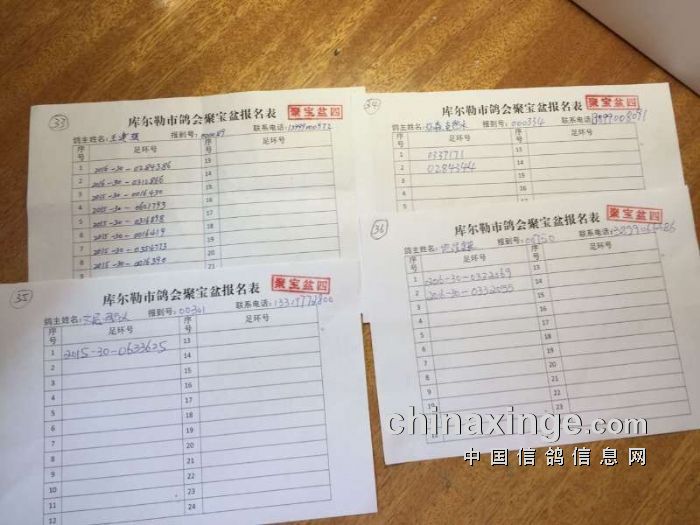 33
聚宝盆四
库尔勒市鸽会聚宝盆报名表
鸽主姓名: 报到号: 联系电话:
序号 足环号 序号 足环号
1 2016-30-0284386 13
2 2016-30-0312866 14
3 2015-30-0016430 15
4 2015-30-0621793 16
5 2015-30-0316898 17
6 2015-30-0016419 18
7 2015-30-0356573 19
8 2015-30-0016390 20
34
聚宝盆四
库尔勒市鸽会聚宝盆报名表
鸽主姓名: 报到号: 000334 联系电话:
序号 足环号 序号 足环号
1 0339171 13
2 0284344 14
3 15
4 16
5 17
6 18
7 19
8 20
35
聚宝盆四
库尔勒市鸽会聚宝盆报名表
鸽主姓名: 报到号: 00301 联系电话: 13319772800
序号 足环号 序号 足环号
1 2015-30-0633625 13
2 14
3 15
4 16
5 17
6 18
7 19
8 20
9 21
10 22
11 23
12 24
36
聚宝盆四
库尔勒市鸽会聚宝盆报名表
鸽主姓名: 报到号: 联系电话:
序号 足环号 序号 足环号
1 2016-30-0322069 13
2 2016-30-0332055 14
3 15
4 16
5 17
6 18
7 19
8 20
9 21
10 22
23
chinaxinge.com
中国信鸽信息网